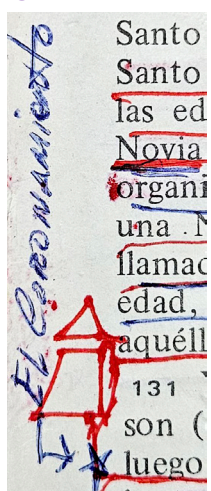 El Coronamiento
Santo
Santo
las ed
Novia
organi
una N
llamad
edad,
aquéll
131
son (
luego